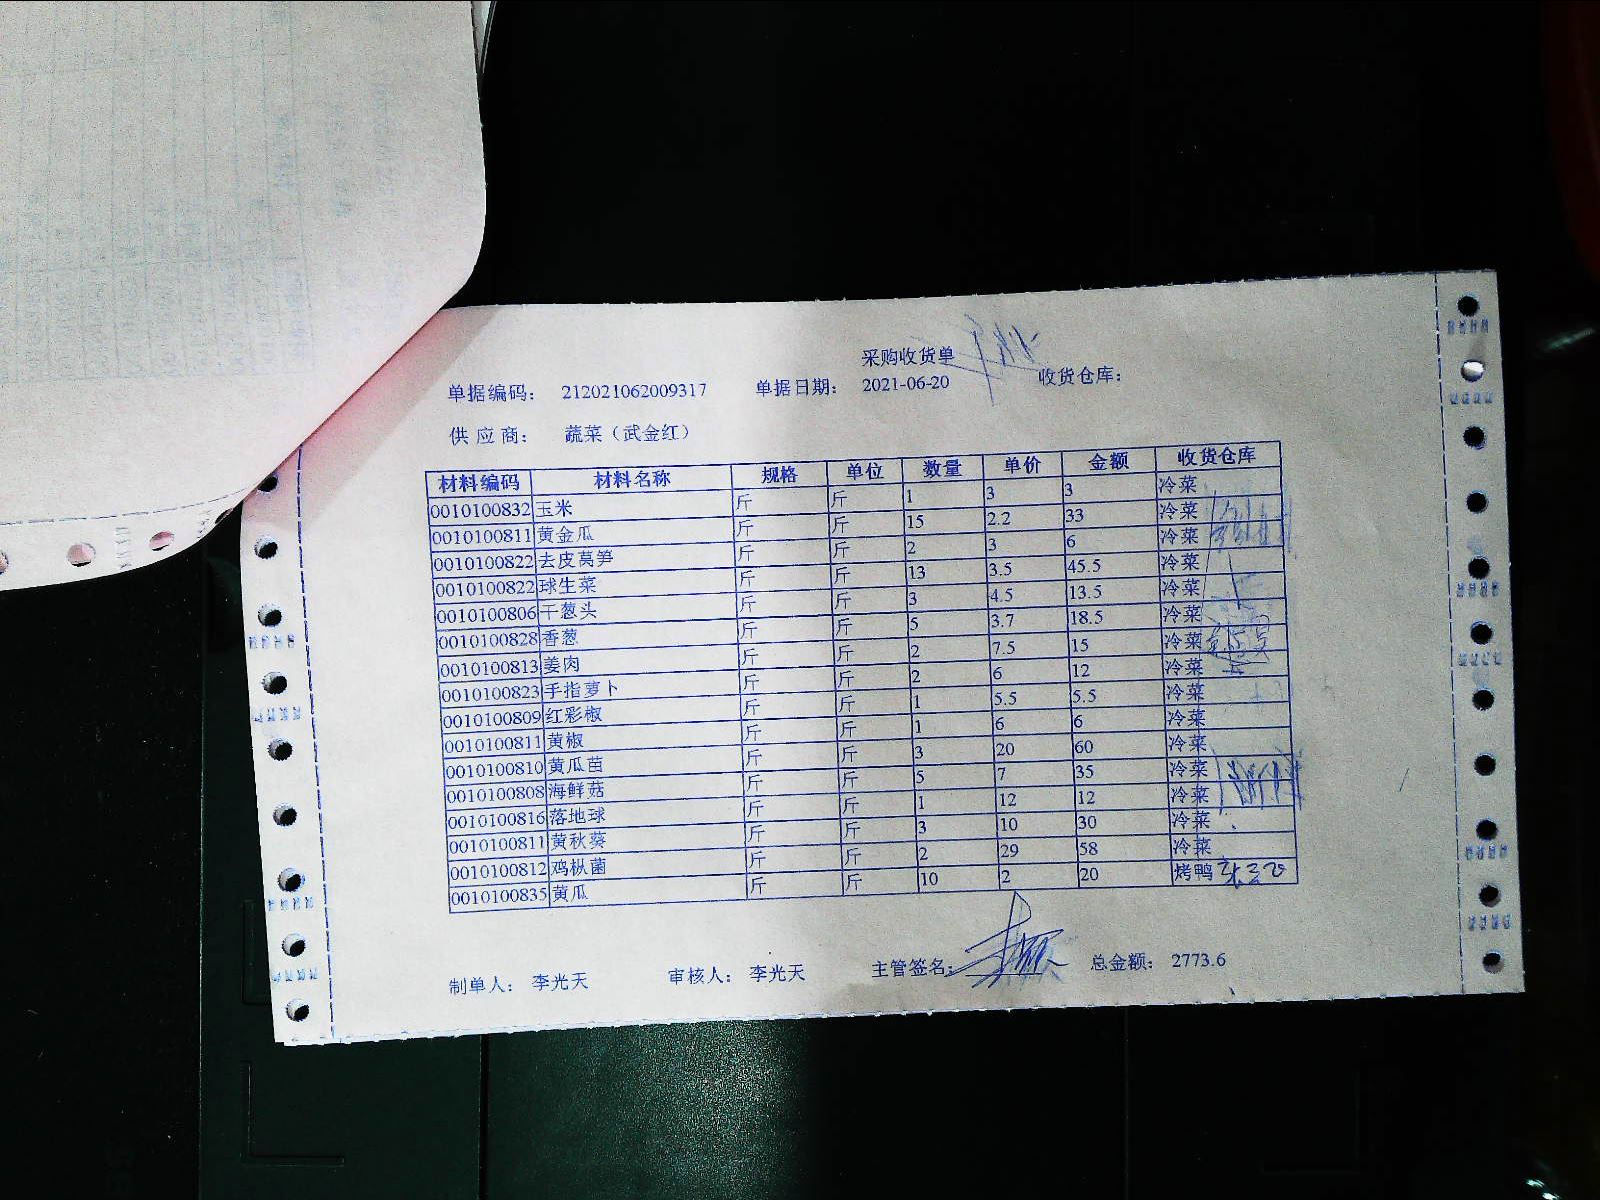 采购收货单
单据编码： 212021062009317 单据日期： 2021-06-20 收货仓库：
供 应 商： 蔬菜（武金红）
材料编码 材料名称 规格 单位 数量 单价 金额 收货仓库
0010100832 玉米 斤 斤 1 3 3 冷菜
0010100811 黄金瓜 斤 斤 15 2.2 33 冷菜
0010100822 去皮莴笋 斤 斤 2 3 6 冷菜
0010100822 球生菜 斤 斤 13 3.5 45.5 冷菜
0010100806 干葱头 斤 斤 3 4.5 13.5 冷菜
0010100828 香葱 斤 斤 5 3.7 18.5 冷菜
0010100813 姜肉 斤 斤 2 7.5 15 冷菜
0010100823 手指萝卜 斤 斤 2 6 12 冷菜
0010100809 红彩椒 斤 斤 1 5.5 5.5 冷菜
0010100811 黄椒 斤 斤 1 6 6 冷菜
0010100810 黄瓜苗 斤 斤 3 20 60 冷菜
0010100808 海鲜菇 斤 斤 5 7 35 冷菜
0010100816 落地球 斤 斤 1 12 12 冷菜
0010100811 黄秋葵 斤 斤 3 10 30 冷菜
0010100812 鸡枞菌 斤 斤 2 29 58 冷菜
0010100835 黄瓜 斤 斤 10 2 20 烤鸭
制单人： 李光天 审核人： 李光天 主管签名： 总金额： 2773.6